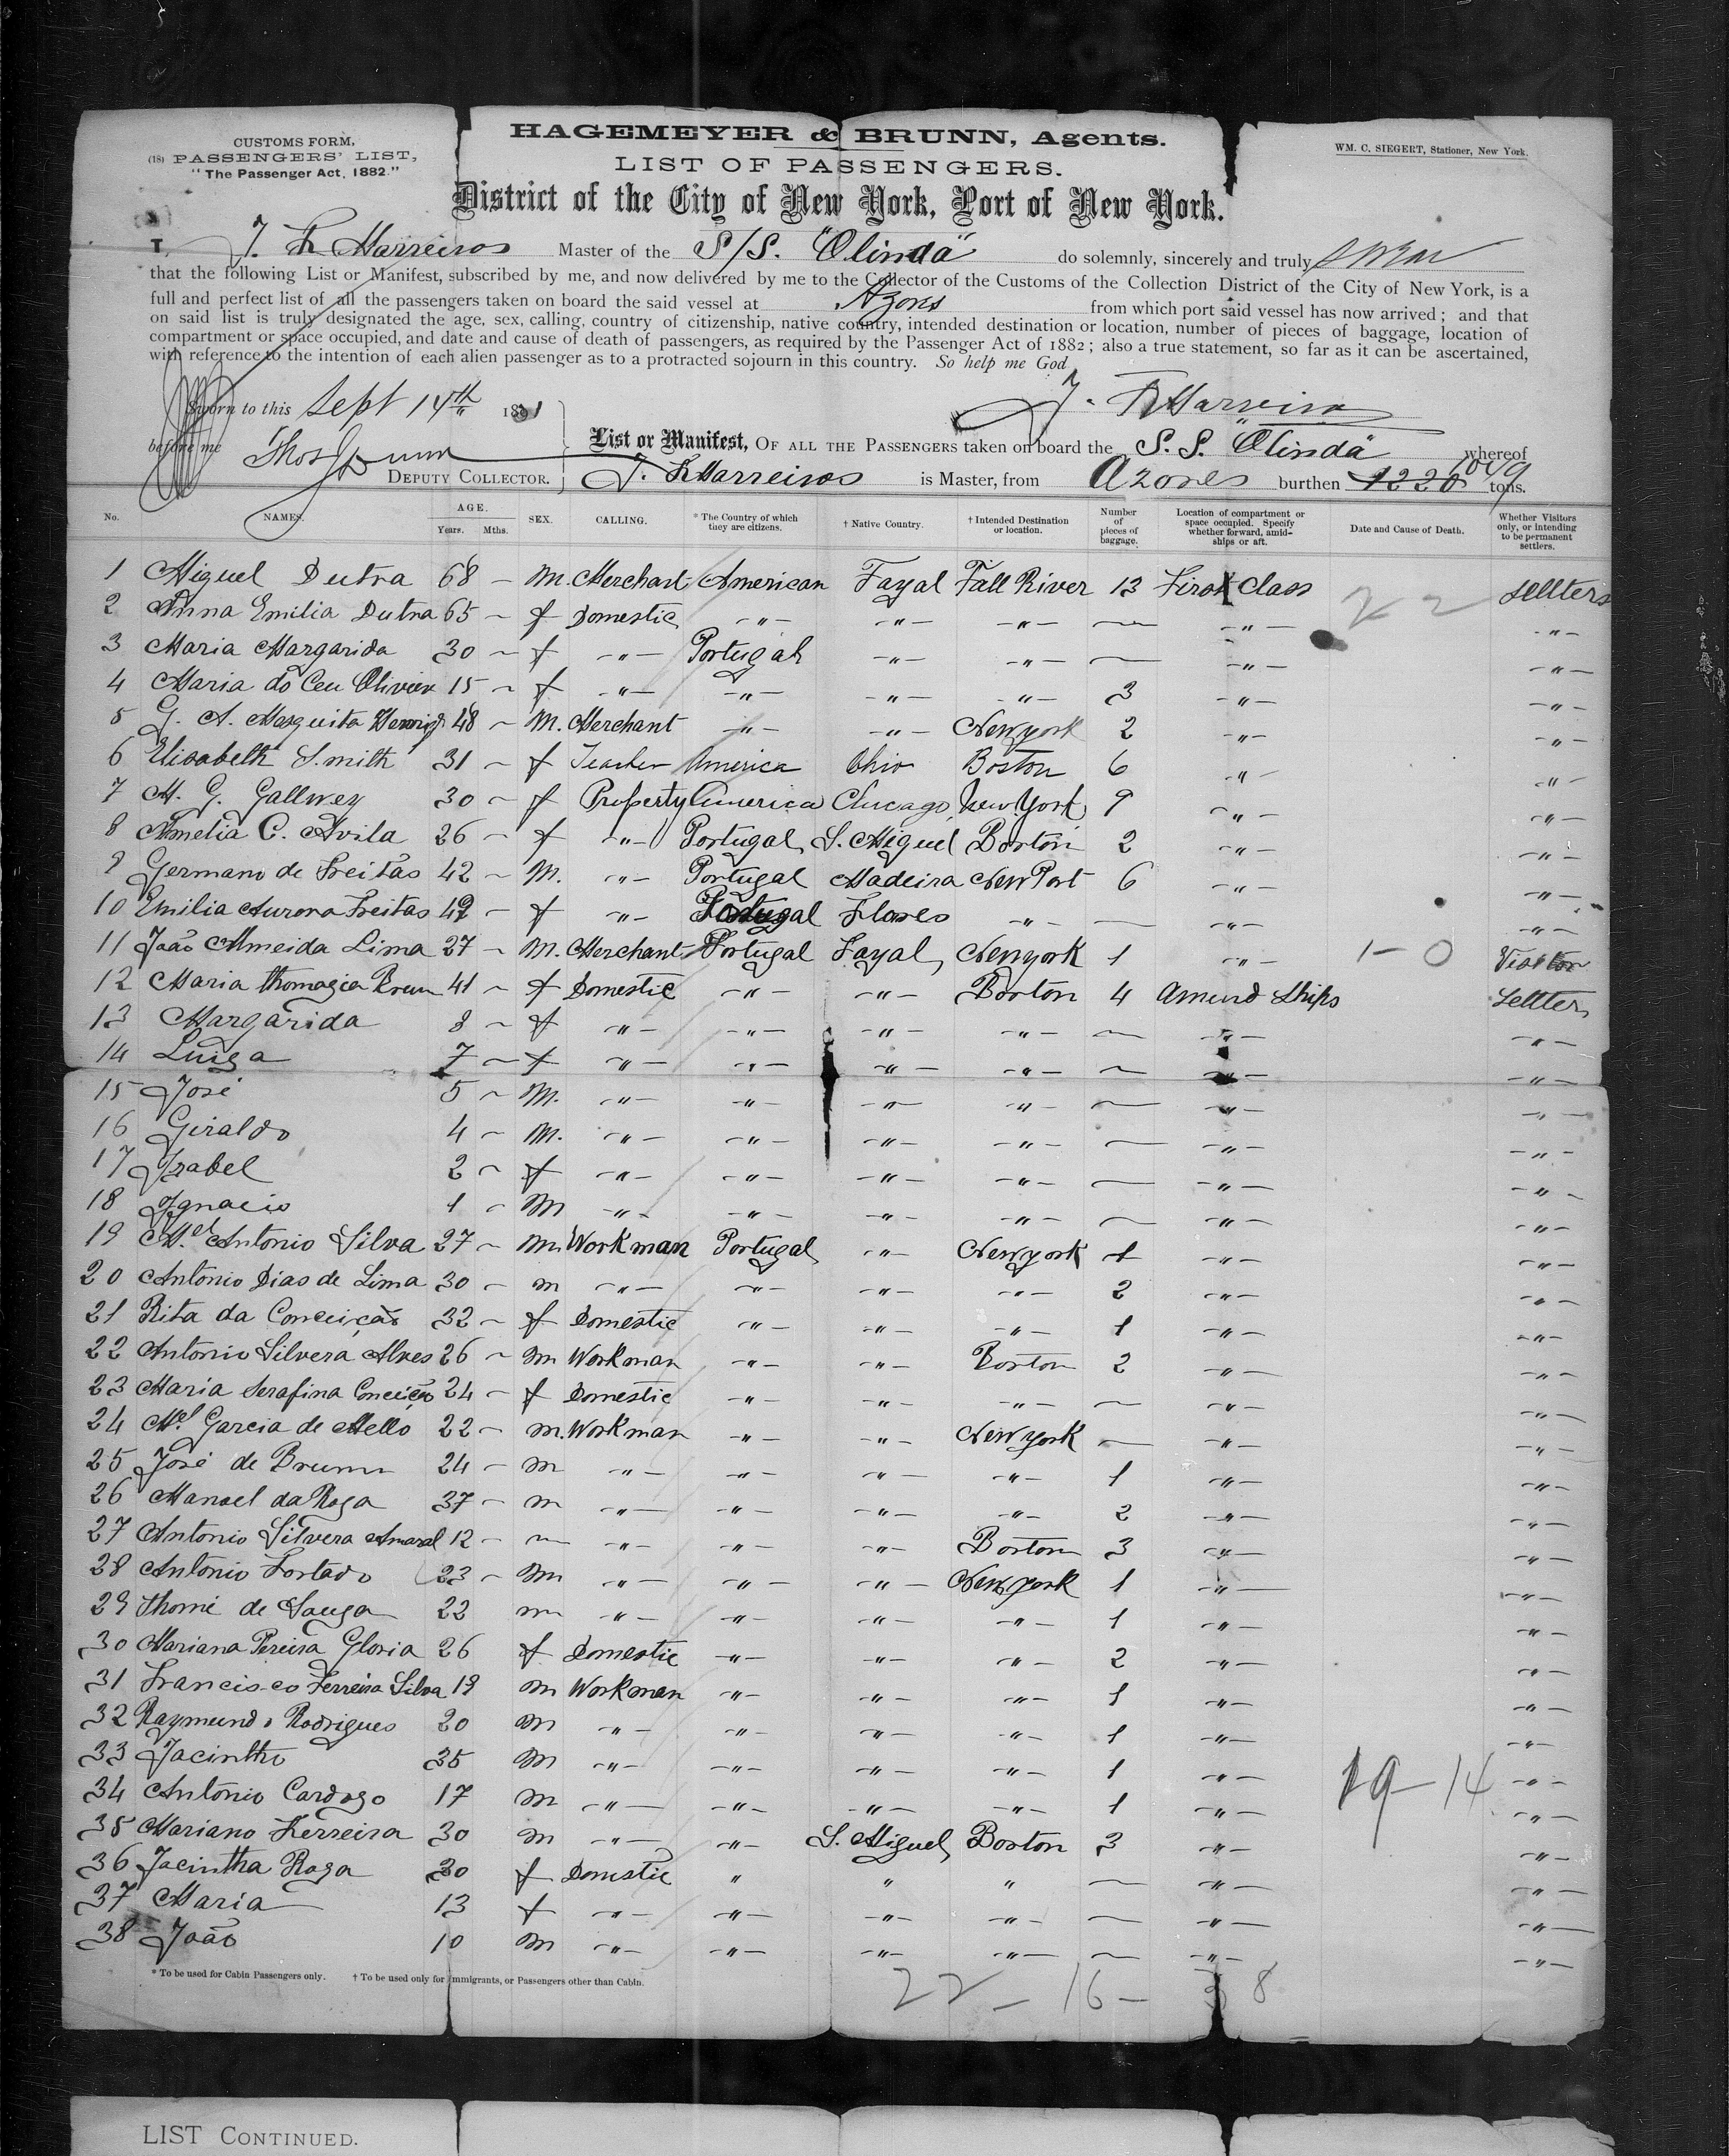 CUSTOMS FORM,
(18) PASSENGERS' LIST,
"The Passenger Act, 1882."
HAGEMEYER & BRUNN, Agents.
LIST OF PASSENGERS.
WM. C. SIEGERT, Stationer, New York.
District of the City of New York, Port of New York.
I, Master of the S/S. "Olinda" do solemnly, sincerely and truly swear
that the following List or Manifest, subscribed by me, and now delivered by me to the Collector of the Customs of the Collection District of the City of New York, is a
full and perfect list of all the passengers taken on board the said vessel at from which port said vessel has now arrived; and that
on said list is truly designated the age, sex, calling, country of citizenship, native country, intended destination or location, number of pieces of baggage, location of
compartment or space occupied, and date and cause of death of passengers, as required by the Passenger Act of 1882; also a true statement, so far as it can be ascertained,
with reference to the intention of each alien passenger as to a protracted sojourn in this country. So help me God
Sworn to this Sept 14th 1891
before me
DEPUTY COLLECTOR.
List or Manifest, OF ALL THE PASSENGERS taken on board the S. S. "Olinda" whereof
is Master, from Azores burthen 1220 tons.
No. NAMES. AGE. Years. Mths. SEX. CALLING. * The Country of which they are citizens. † Native Country. † Intended Destination or location. Number of pieces of baggage. Location of compartment or space occupied. Specify whether forward, amidships or aft. Date and Cause of Death. Whether Visitors only, or intending to be permanent settlers.
1 Miguel Dutra 68 — M. Merchant American Fayal Fall River 13 First Class settlers
2 Anna Emilia Dutra 65 — f Domestic -"- -"- -"- — -"- 2 2 -"-
3 Maria Margarida 30 — f -"- Portugal -"- -"- — -"- -"-
4 Maria do Ceu 15 — f -"- -"- -"- -"- 3 -"- -"-
5 G. A. Mesquita 48 — M. Merchant -"- -"- Newyork 2 -"- -"-
6 Elisabeth Smith 31 — f Teacher America Ohio Boston 6 -"- -"-
7 M. G. Gallwey 30 — f Property America Chicago New York 9 -"- -"-
8 Amelia C. Avila 26 — f -"- Portugal S. Miguel Boston 2 -"- -"-
9 Germano de Freitas 42 — M. -"- Portugal Madeira New Port 6 -"- -"-
10 Emilia Aurora Freitas 42 — f -"- Portugal Flores -"- — -"- -"-
11 João Almeida Lima 27 — M. Merchant Portugal Fayal Newyork 1 -"- 1 - 0 Visitor
12 Maria Thomazia Brum 41 — f Domestic -"- -"- Boston 4 Amend Ships settler
13 Margarida 8 — f -"- -"- -"- -"- — -"- -"-
14 Luiza 7 — f -"- -"- -"- -"- — -"- -"-
15 José 5 — M. -"- -"- -"- -"- — -"- -"-
16 Giraldo 4 — M. -"- -"- -"- -"- — -"- -"-
17 Izabel 2 — f -"- -"- -"- -"- — -"- -"-
18 Ignacio 1 — M -"- -"- -"- -"- — -"- -"-
19 Mel Antonio Silva 27 — M. Workman Portugal -"- Newyork 1 -"- -"-
20 Antonio Dias de Lima 30 — m -"- -"- -"- -"- 2 -"- -"-
21 Rita da Conceição 32 — f Domestic -"- -"- -"- 1 -"- -"-
22 Antonio Silvera Alves 26 — m Workman -"- -"- Boston 2 -"- -"-
23 Maria Serafina Conceição 24 — f Domestic -"- -"- -"- — -"- -"-
24 Mel Garcia de Mello 22 — m. Workman -"- -"- New york — -"- -"-
25 José de Brum 24 — m -"- -"- -"- -"- 1 -"- -"-
26 Manoel da Roza 37 — m -"- -"- -"- -"- 2 -"- -"-
27 Antonio Silvera Amaral 12 — m -"- -"- -"- Boston 3 -"- -"-
28 Antonio Fortado 23 — m -"- -"- -"- New york 1 -"- -"-
29 Thomé de Souza 22 m -"- -"- -"- -"- 1 -"- -"-
30 Mariana Pereira Gloria 26 f Domestic -"- -"- -"- 2 -"- -"-
31 Francisco Ferreira Silva 19 m Workman -"- -"- -"- 1 -"- -"-
32 Raymundo Rodrigues 20 m -"- -"- -"- -"- 1 -"- -"-
33 Jacintho 35 m -"- -"- -"- -"- 1 -"- 19 - 14 -"-
34 Antonio Cardozo 17 m -"- -"- -"- -"- 1 -"- -"-
35 Mariano Ferreira 30 m -"- -"- S. Miguel Boston 3 -"- -"-
36 Jacintha Roza 30 f Domestic " " " — -"- -"-
37 Maria 13 f -"- -"- -"- -"- — -"- -"-
38 João 10 m -"- -"- -"- -"- — -"- -"-
* To be used for Cabin Passengers only. † To be used only for Immigrants, or Passengers other than Cabin.
22 - 16 - 38
LIST CONTINUED.